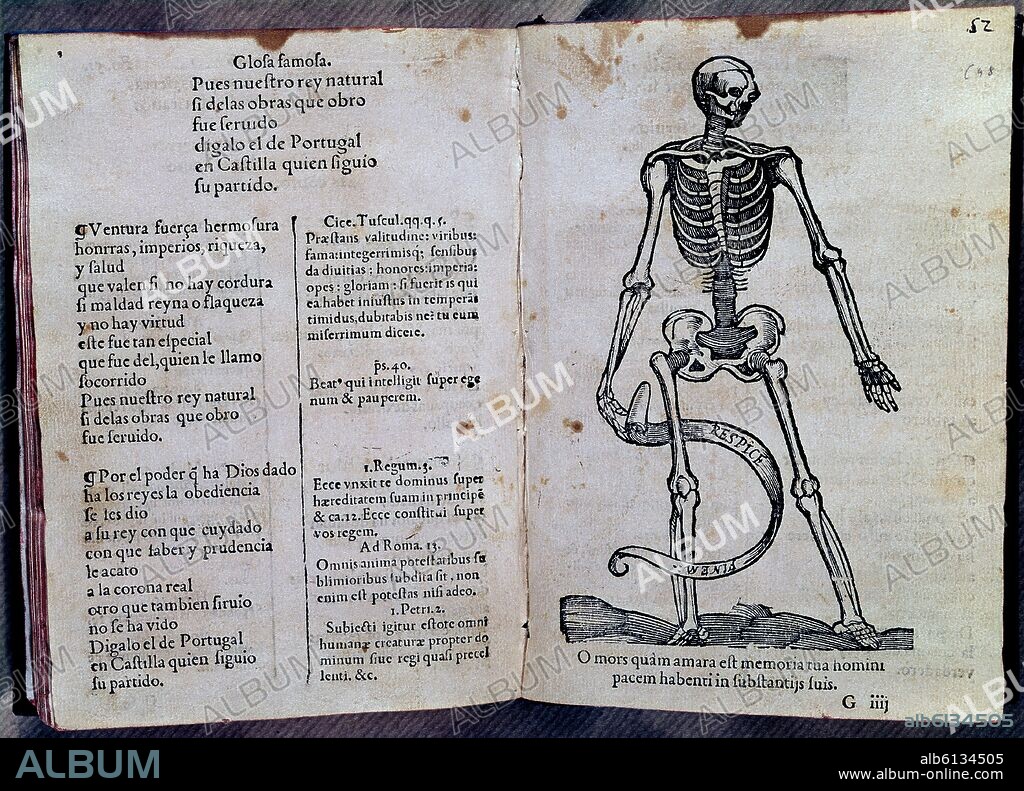 Glosa famosa.
Pues nuestro rey natural
si delas obras que obro
fue seruido
digalo el de Portugal
en Castilla quien siguio
su partido.
¶Ventura fuerça hermosura
honrras, imperios, riqueza,
y salud
que valen si no hay cordura
si maldad reyna o flaqueza
y no hay virtud
este fue tan especial
que fue del, quien le llamo
socorrido
Pues nuestro rey natural
si delas obras que obro
fue seruido.
¶Por el poder q̃ ha Dios dado
ha los reyes la obediencia
se les dio
a su rey con que cuydado
con que saber y prudencia
le acato
a la corona real
otro que tambien siruio
no se ha vido
Digalo el de Portugal
en Castilla quien siguio
su partido.
Cice. Tuscul. qq. q. 5.
Præstans valitudine: viribus:
fama: integerrimisq; sensibus
da diuitias: honores: imperia:
opes: gloriam: si fuerit is qui
ea habet iniustus in temperãs
timidus, dubitabis ne: tu eum
miserrimum dicere.
p̃s. 40.
Beat' qui intelligit super ege
num & pauperem.
1. Regum. 3.
Ecce vnxit te dominus super
hæreditatem suam in principẽ
& ca. 12. Ecce constitui super
vos regem.
Ad Roma. 13.
Omnis anima potestatibus su
blimioribus subdita sit, non
enim est potestas nisi adeo.
1. Petri. 2.
Subiecti igitur estote omni
humanæ creaturæ propter do
minum siue regi quasi præcel
lenti, &c.
52
RESPICE
FINEM
O mors quàm amara est memoria tua homini
pacem habenti in substantijs suis.
G iiij
alb6134505
ALBUM
alb6134505
www.album-online.com